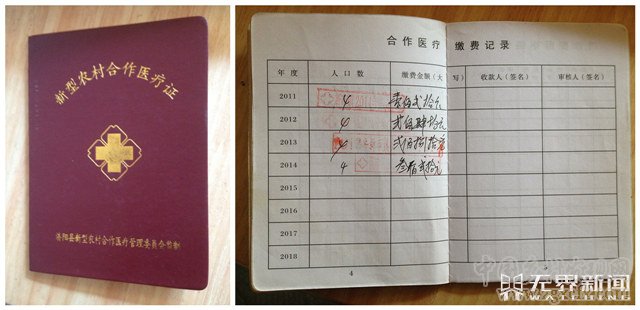 新型农村合作医疗证
济阳县新型农村合作医疗管理委员会监制
合作医疗 缴费记录
年度 人口数 缴费金额(大 写) 收款人(签名) 审核人(签名)
2011 4 壹佰贰拾元
2012 4 贰佰肆拾元
2013 4 贰佰捌拾元
2014 4 叁佰贰拾元
2015
2016
2017
2018
4
无界新闻
WATCHING